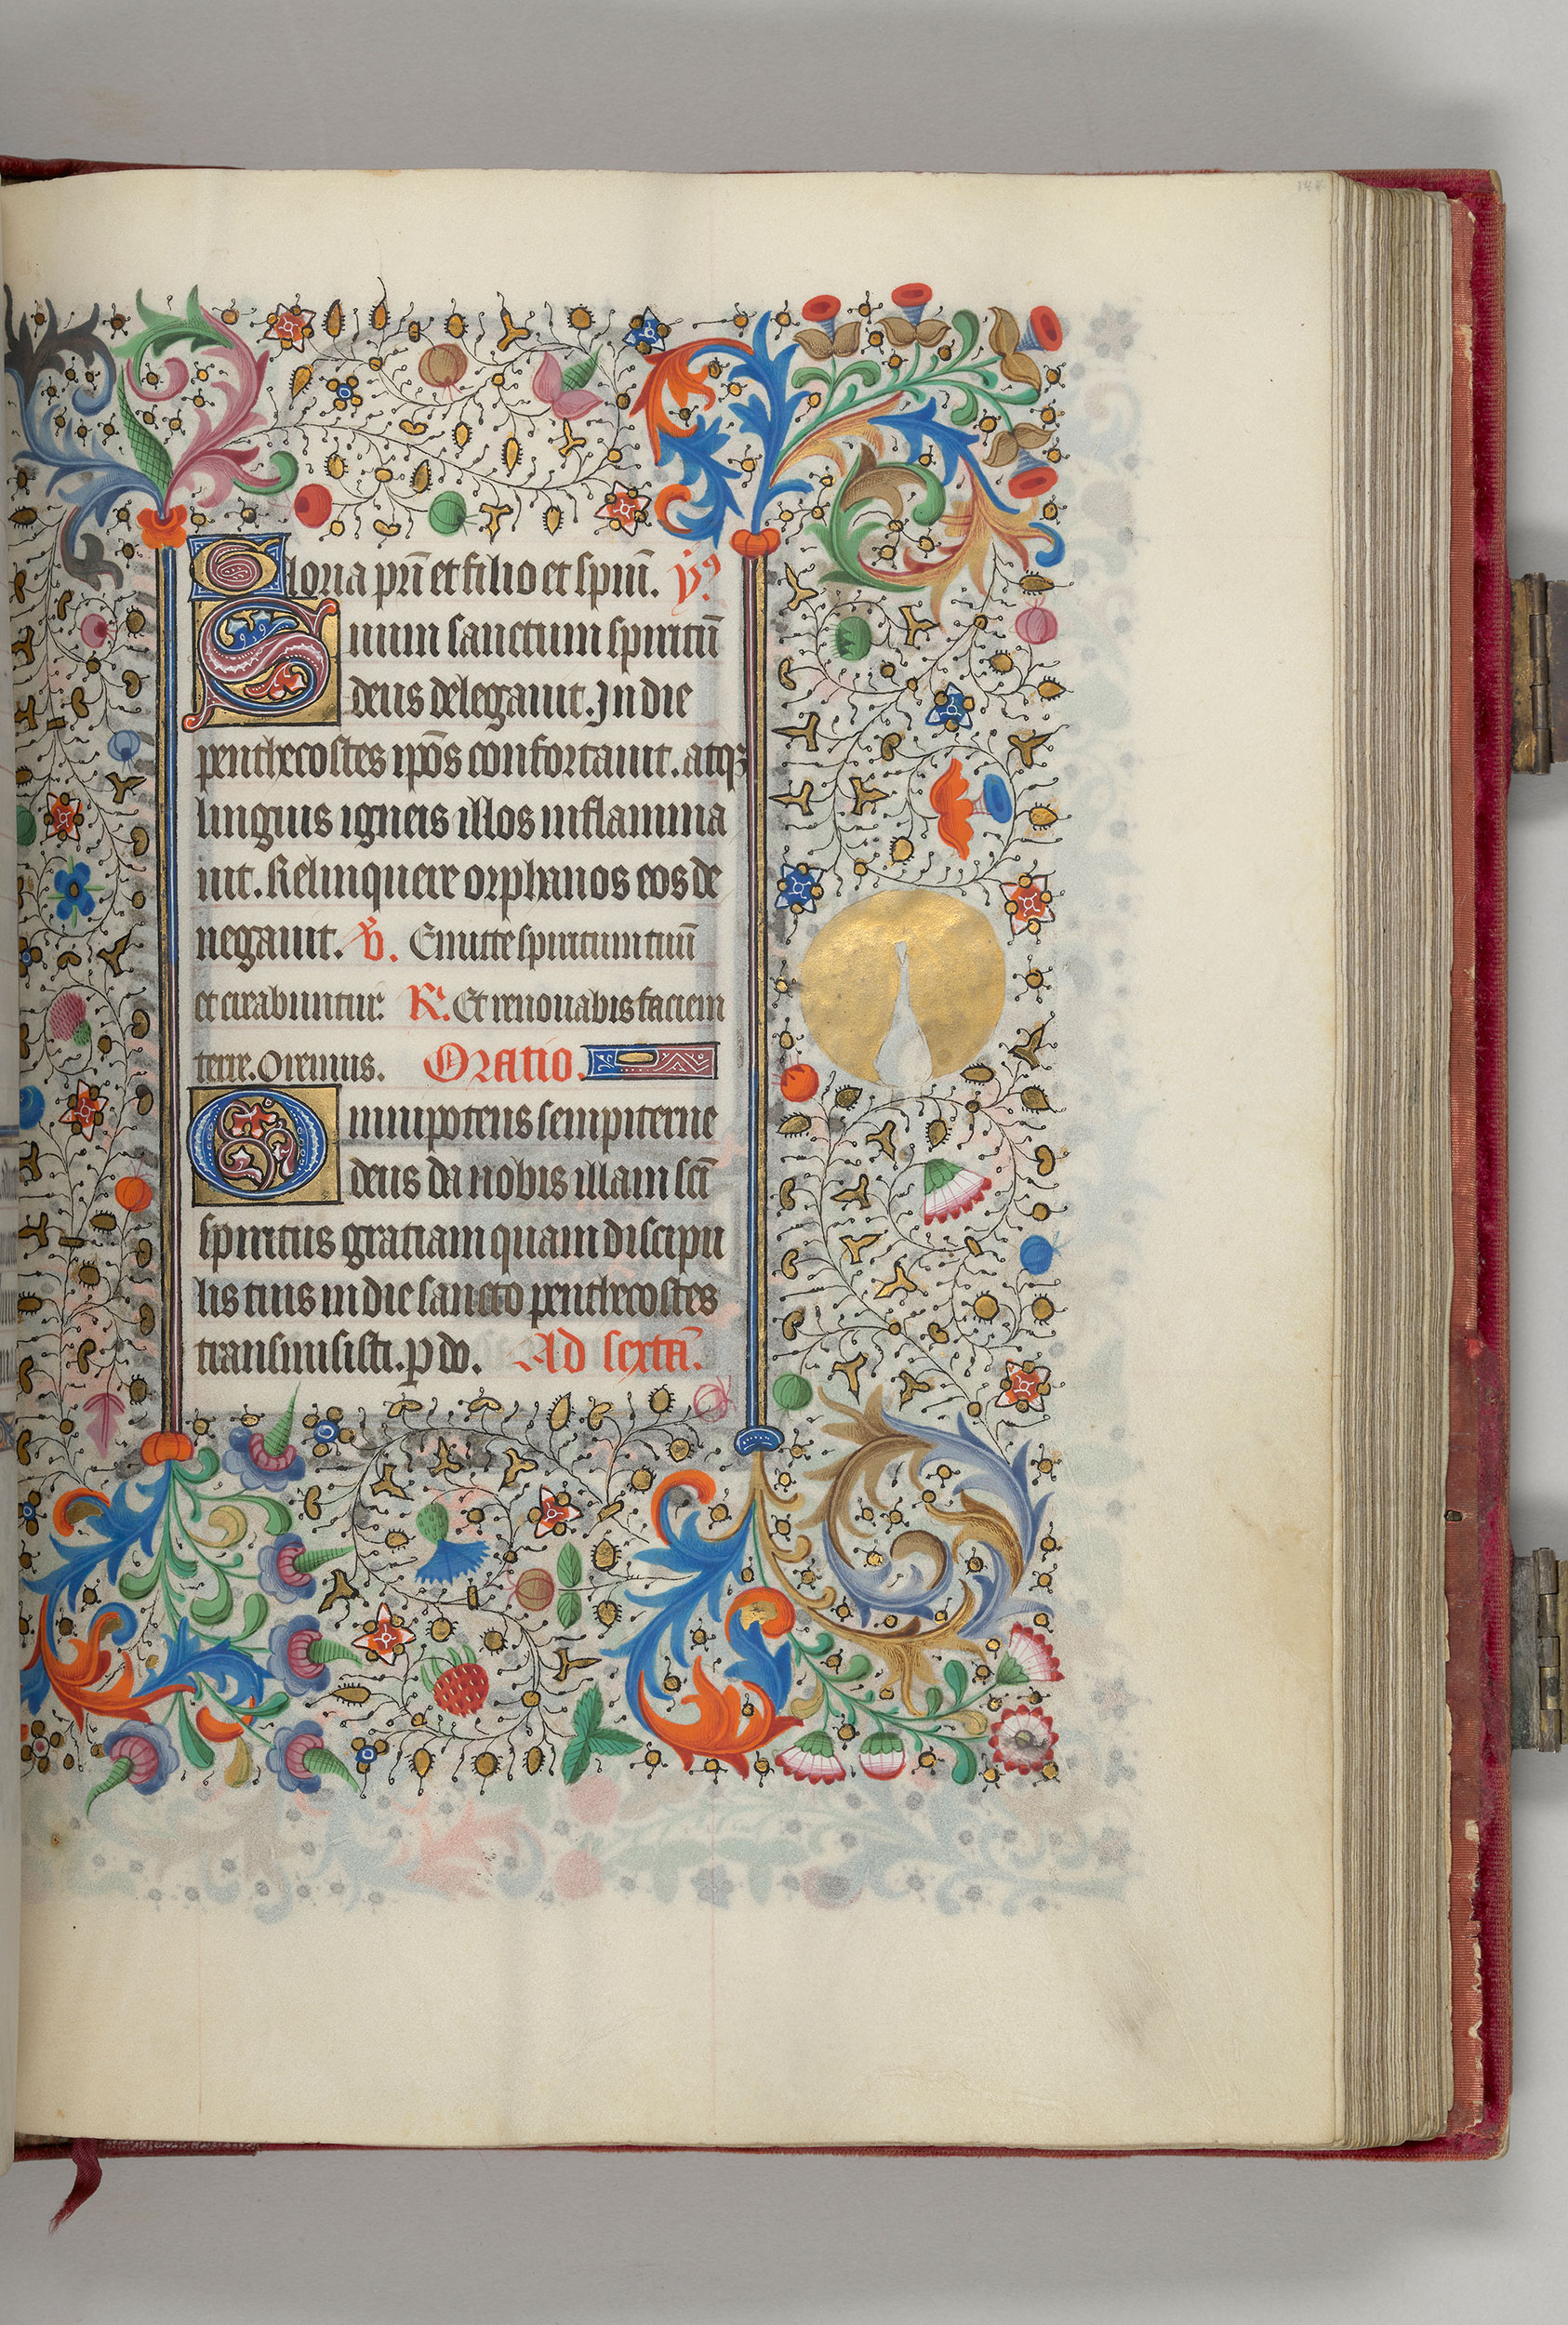 Gloria pri̅ et filio et spiri̅. v̇ꝰ
Suum sanctum spiritu̅
deus delegauit. In die
penthecostes ip̅os confortauit. atqꝫ
linguis igneis illos inflamma
uit. Relinquere orphanos eos de
negauit. v̇. Emitte spiritum tuu̅
et creabuntur. R. Et renouabis faciem
terre. Oremus. Oratio.
Omnipotens sempiterne
deus da nobis illam sci̅
spiritus gratiam quam discipu
lis tuis in die sancto penthecostes
transmisisti. p do. Ad sexta̅.